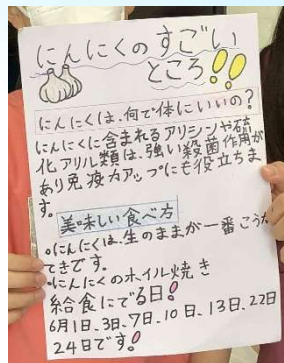 にんにくのすごい
ところ!!
にんにくは、何で体にいいの?
にんにくに含まれるアリシンや硫
化アリル類は、強い殺菌作用が
あり免疫力アップにも役立ちま
す。
美味しい食べ方
・にんにくは、生のままが一番こうか
てきです。
・にんにくのホイル焼き
給食にでる日!
6月1日、3日、7日、10日、13日、22日
24日です!